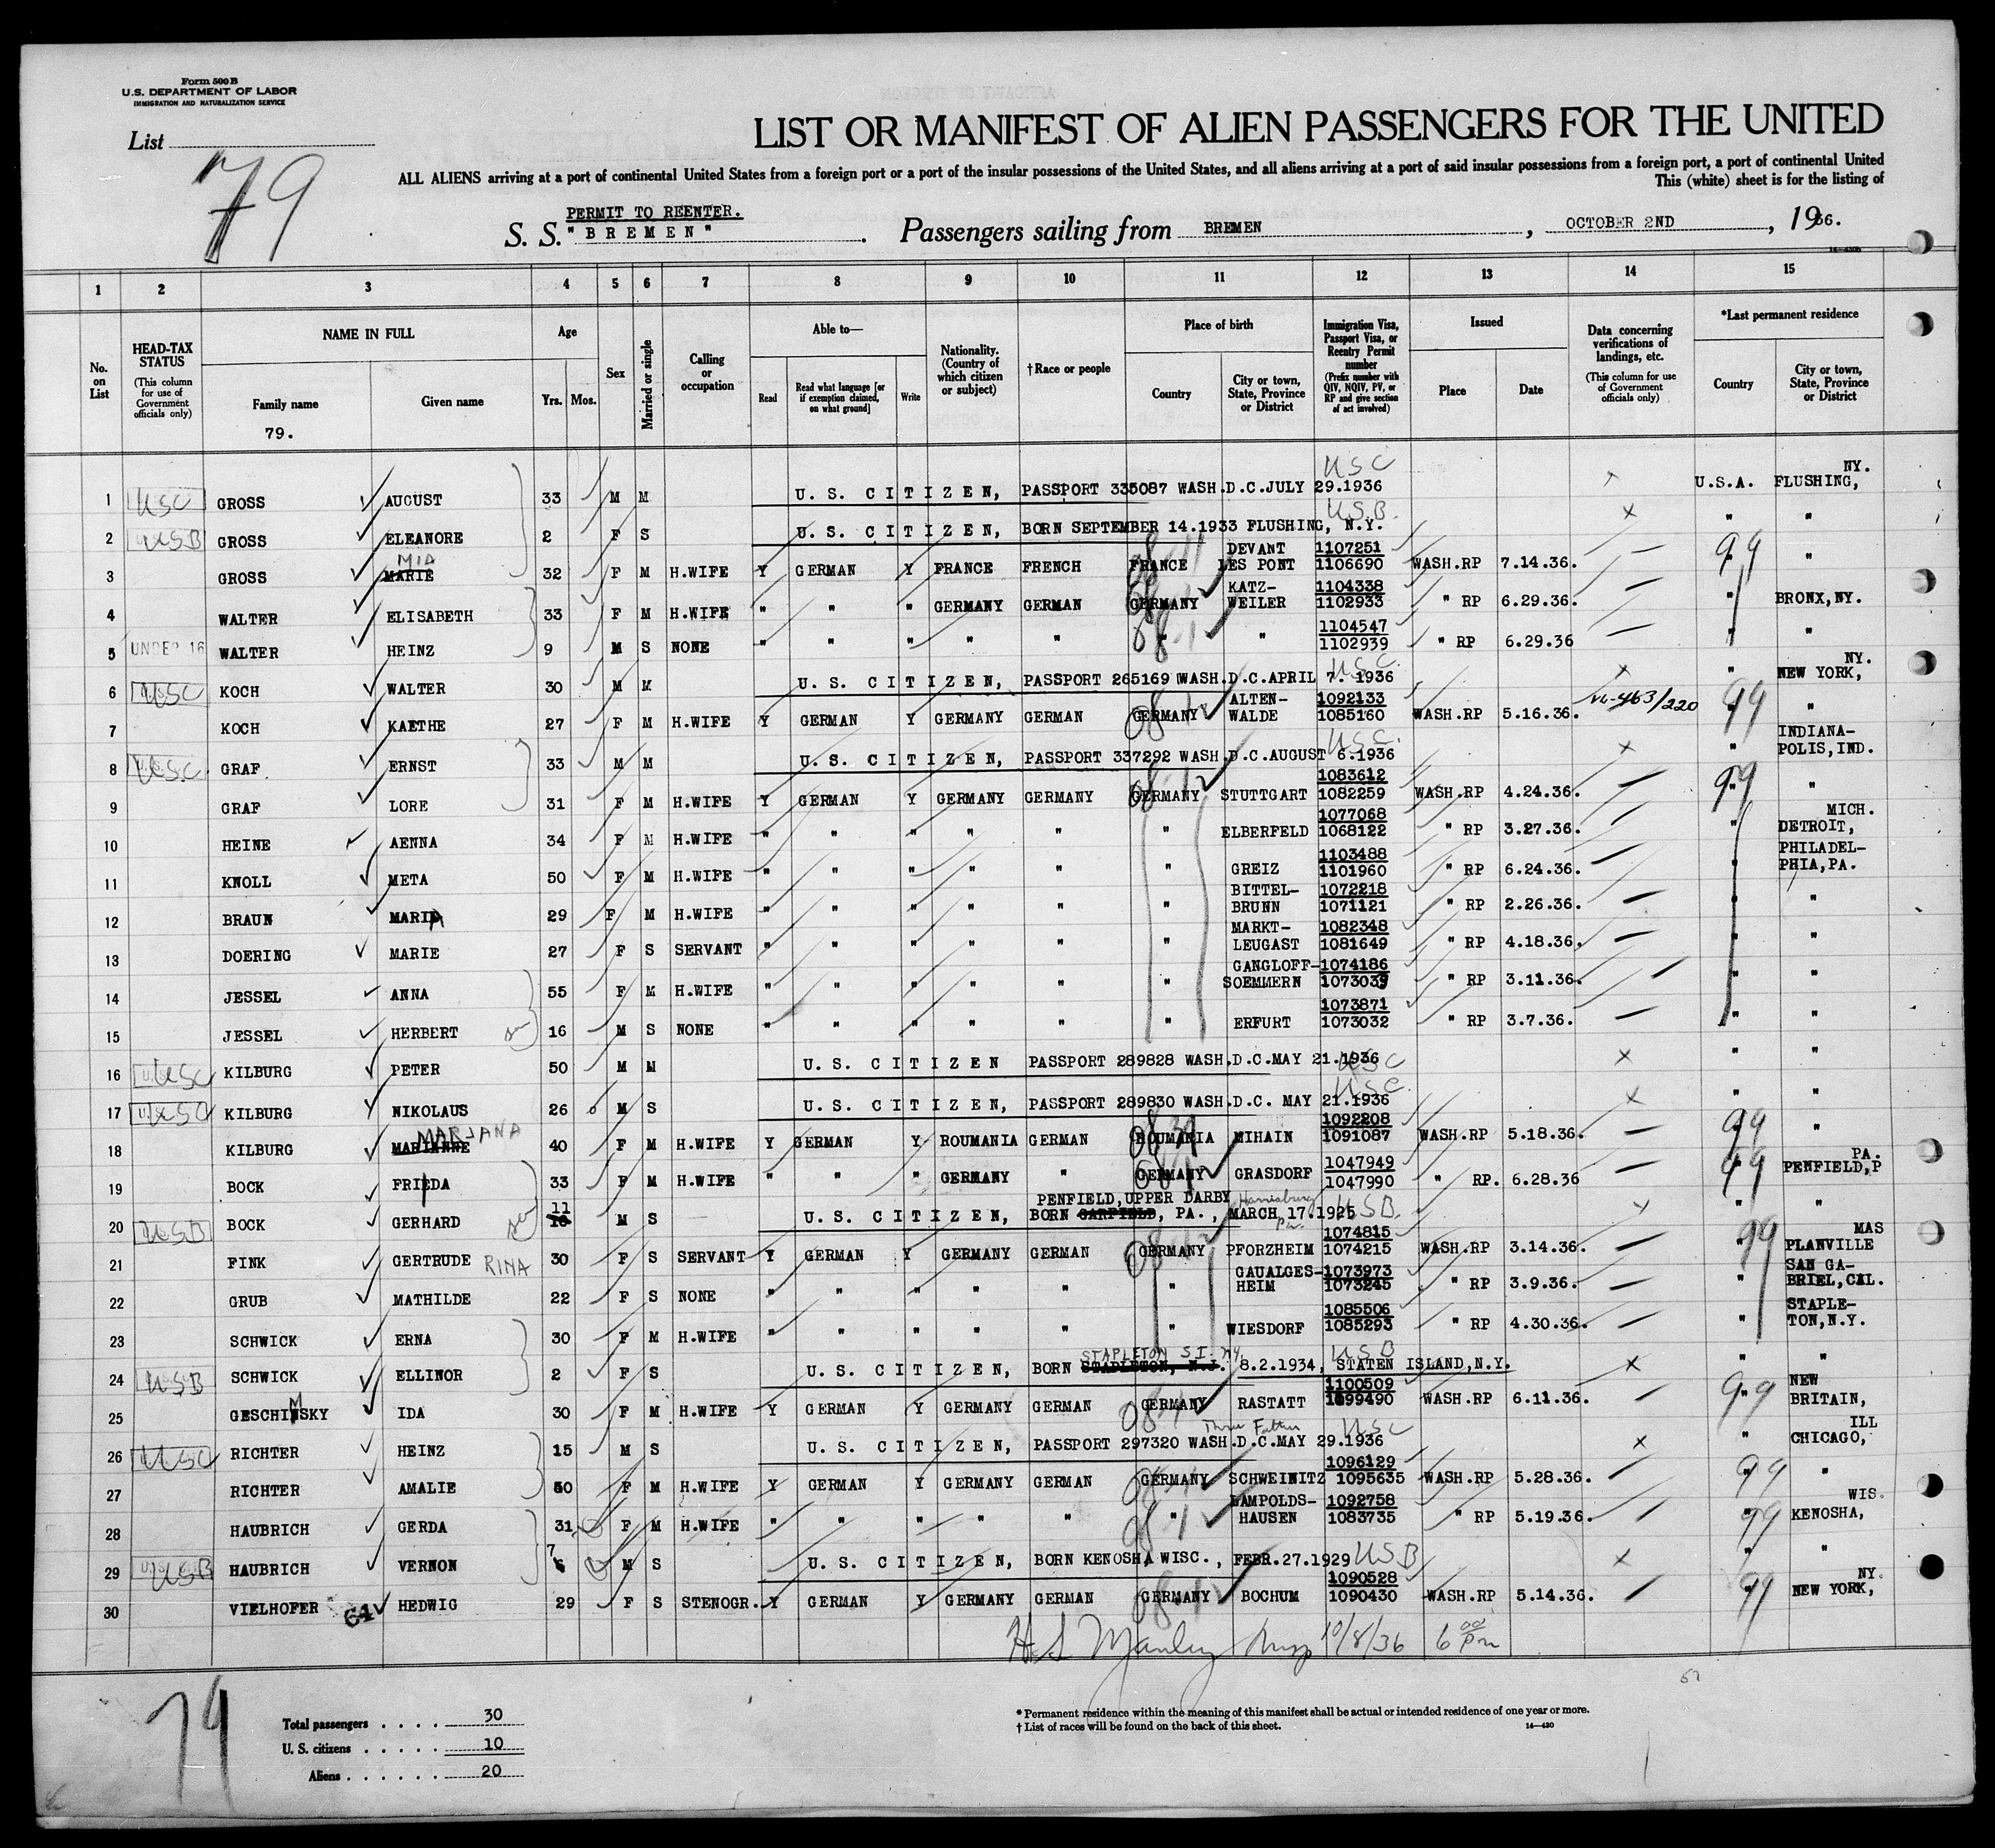 Form 500 B
U.S. DEPARTMENT OF LABOR
IMMIGRATION AND NATURALIZATION SERVICE
List
79
LIST OR MANIFEST OF ALIEN PASSENGERS FOR THE UNITED
ALL ALIENS arriving at a port of continental United States from a foreign port or a port of the insular possessions of the United States, and all aliens arriving at a port of said insular possessions from a foreign port, a port of continental United
This (white) sheet is for the listing of
PERMIT TO REENTER.
S. S. "BREMEN" Passengers sailing from BREMEN, OCTOBER 2ND, 1936.
1 2 3 4 5 6 7 8 9 10 11 12 13 14 15
No. on List
HEAD-TAX STATUS (This column for use of Government officials only)
NAME IN FULL
Family name
79.
Given name
Age
Yrs. Mos.
Sex
Married or single
Calling or occupation
Able to—
Read
Read what language [or if exemption claimed, on what ground]
Write
Nationality. (Country of which citizen or subject)
†Race or people
Place of birth
Country
City or town, State, Province or District
Immigration Visa, Passport Visa, or Reentry Permit number (Prefix number with QIV, NQIV, PV, or RP and give section of act involved)
Issued
Place
Date
Data concerning verifications of landings, etc. (This column for use of Government officials only)
*Last permanent residence
Country
City or town, State, Province or District
1 USC GROSS AUGUST 33 M M U. S. CITIZEN, PASSPORT 335087 WASH.D.C.JULY 29.1936 USC U.S.A. FLUSHING, NY.
2 USB GROSS ELEANORE 2 F S U. S. CITIZEN, BORN SEPTEMBER 14.1933 FLUSHING, N.Y. USB " "
3 GROSS MARIE MIA 32 F M H.WIFE Y GERMAN Y FRANCE FRENCH FRANCE DEVANT LES PONT 1107251 1106690 WASH.RP 7.14.36. 99 "
4 WALTER ELISABETH 33 F M H.WIFE " " " GERMANY GERMAN GERMANY KATZ-WEILER 1104338 1102933 " RP 6.29.36. " BRONX,NY.
5 UNDER 16 WALTER HEINZ 9 M S NONE " " " " " " " 1104547 1102939 " RP 6.29.36 " "
6 USC KOCH WALTER 30 M M U. S. CITIZEN, PASSPORT 265169 WASH.D.C.APRIL 7. 1936 USC " NEW YORK, NY.
7 KOCH KAETHE 27 F M H.WIFE Y GERMAN Y GERMANY GERMAN GERMANY ALTEN-WALDE 1092133 1085160 WASH.RP 5.16.36. 99 "
8 USC GRAF ERNST 33 M M U. S. CITIZEN, PASSPORT 337292 WASH.D.C.AUGUST 6.1936 USC " INDIANA-POLIS,IND.
9 GRAF LORE 31 F M H.WIFE Y GERMAN Y GERMANY GERMANY GERMANY STUTTGART 1083612 1082259 WASH.RP 4.24.36. 99 "
10 HEINE AENNA 34 F M H.WIFE " " " " " " ELBERFELD 1077068 1068122 " RP 3.27.36. " DETROIT, MICH.
11 KNOLL META 50 F M H.WIFE " " " " " " GREIZ 1103488 1101960 " RP 6.24.36. " PHILADEL-PHIA,PA.
12 BRAUN MARIA 29 F M H.WIFE " " " " " " BITTEL-BRUNN 1072218 1071121 " RP 2.26.36. " "
13 DOERING MARIE 27 F S SERVANT " " " " " " MARKT-LEUGAST 1082348 1081649 " RP 4.18.36. " "
14 JESSEL ANNA 55 F M H.WIFE " " " " " " GANGLOFF-SOEMMERN 1074186 1073039 " RP 3.11.36. " "
15 JESSEL HERBERT 16 M S NONE " " " " " " ERFURT 1073871 1073032 " RP 3.7.36. " "
16 USC KILBURG PETER 50 M M U. S. CITIZEN PASSPORT 289828 WASH.D.C.MAY 21.1936 USC " "
17 USC KILBURG NIKOLAUS 26 M S U. S. CITIZEN, PASSPORT 289830 WASH.D.C. MAY 21.1936 USC " "
18 KILBURG MARIANNE MARJANA 40 F M H.WIFE Y GERMAN Y ROUMANIA GERMAN ROUMANIA MIHAIN 1092208 1091087 WASH.RP 5.18.36. 99 "
19 BOCK FRIEDA 33 F M H.WIFE " " " GERMANY " GERMANY GRASDORF 1047949 1047990 " RP. 6.28.36 99 PENFIELD,P PA.
20 USB BOCK GERHARD 11 10 M S U. S. CITIZEN, BORN GARFIELD, PENFIELD,UPPER DARBY PA., MARCH 17.1925 Harrisburg Pa. USB " "
21 FINK GERTRUDE RINA 30 F S SERVANT Y GERMAN Y GERMANY GERMAN GERMANY PFORZHEIM 1074815 1074215 WASH.RP 3.14.36. 99 PLANVILLE MAS
22 GRUB MATHILDE 22 F S NONE " " " " " " GAUALGES-HEIM 1073973 1073245 " RP 3.9.36. " SAN GA-BRIEL,CAL.
23 SCHWICK ERNA 30 F M H.WIFE " " " " " " WIESDORF 1085506 1085293 " RP 4.30.36. " STAPLE-TON,N.Y.
24 USB SCHWICK ELLINOR 2 F S U. S. CITIZEN, BORN STAPLETON, N.J. STAPLETON S.I. NY. 8.2.1934, STATEN ISLAND,N.Y. USB " "
25 GESCHIMSKY IDA 30 F M H.WIFE Y GERMAN Y GERMANY GERMAN GERMANY RASTATT 1100509 1099490 WASH.RP 6.11.36. 99 NEW BRITAIN,
26 USC RICHTER HEINZ 15 M S U. S. CITIZEN, PASSPORT 297320 WASH.D.C.MAY 29.1936 Thru Father USC " CHICAGO, ILL
27 RICHTER AMALIE 50 F M H.WIFE Y GERMAN Y GERMANY GERMAN GERMANY SCHWEINITZ 1096129 1095635 WASH.RP 5.28.36. 99 "
28 HAUBRICH GERDA 31 F M H.WIFE " " " " " " LAMPOLDS-HAUSEN 1092758 1083735 " RP 5.19.36. 99 KENOSHA, WIS.
29 USB HAUBRICH VERNON 7 M S U. S. CITIZEN, BORN KENOSHA WISC., FEBR.27.1929 USB " "
30 VIELHOFER 64 HEDWIG 29 F S STENOGR. Y GERMAN Y GERMANY GERMAN GERMANY BOCHUM 1090528 1090430 WASH.RP 5.14.36. 99 NEW YORK, NY.
10/8/36 6 00 pm
79
Total passengers . . . . 30
U. S. citizens . . . . . 10
Aliens . . . . . . 20
* Permanent residence within the meaning of this manifest shall be actual or intended residence of one year or more.
† List of races will be found on the back of this sheet.
14—430